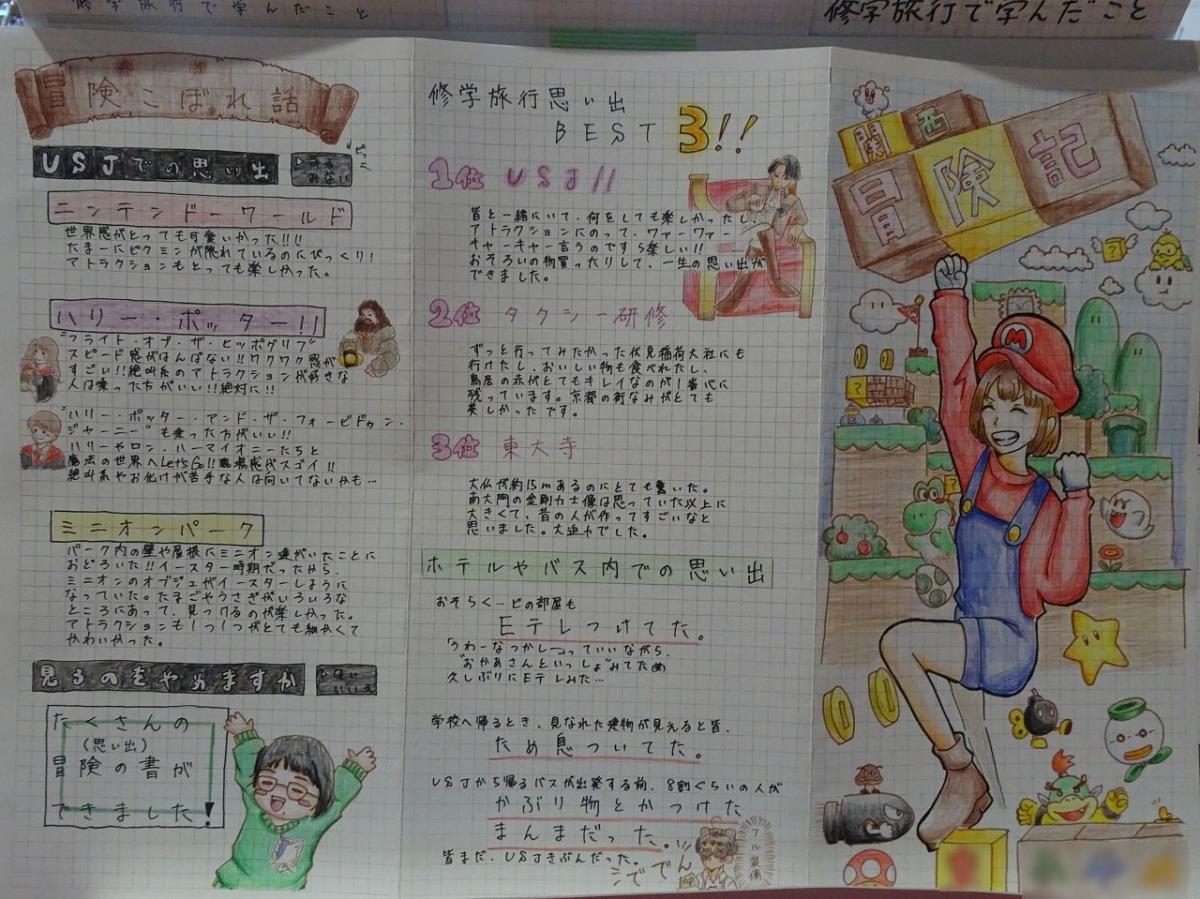 修学旅行で学んだこと
修学旅行で学んだこと
冒険こぼれ話
USJでの思い出
みない
ピッ
ニンテンドーワールド
世界感がとっても可愛いかった!!!
たまーにピクミンが隠れているのにびっくり!
アトラクションもとっても楽しかった。
ハリー・ポッター!!
"フライト・オブ・ザ・ヒッポグリフ"
スピード感がはんぱない!!ワクワク感が
すごい!!絶叫系のアトラクションが好きな
人は乗った方がいい!!絶対に!!
"ハリー・ポッター・アンド・ザ・フォービドゥン・
ジャーニー"も乗った方がいい!!
ハリーやロン・ハーマイオニーたちと
魔法の世界へLet's Go!!臨場感がスゴイ!!
絶叫系やお化けが苦手な人は向いてないかも…
ミニオンパーク
パーク内の壁や屋根にミニオン達がいたことに
おどろいた!!イースター時期だったから、
ミニオンのオブジェがイースターしように
なっていた。たまごやうさぎがいろいろな
ところにあって、見つけるのが楽しかった。
アトラクションも1つ1つがとても細かくて
かわいかった。
見るのをやめますか
はい
いいえ
たくさんの
(思い出)
冒険の書が
できました!
修学旅行思い出
BEST 3!!
1位 USJ!!
皆と一緒にいて、何をしても楽しかったし、
アトラクションにのって、ワァーワァー
キャーキャー言うのですら楽しい!!
おそろいの物買ったりして、一生の思い出が
できました。
2位 タクシー研修
ずっと行ってみたかった伏見稲荷大社にも
行けたし、おいしい物も食べれたし、
鳥居の赤がとてもキレイなのが1番心に
残っています。京都の街なみがとても
美しかったです。
3位 東大寺
大仏が約15mあるのにとても驚いた。
南大門の金剛力士像は思っていた以上に
大きくて、昔の人が作ってすごいなと
思いました。大迫力でした。
ホテルやバス内での思い出
おそらく…どの部屋も
Eテレつけてた。
「うわーなつかしーっていいながら、
"おかあさんといっしょ"みてため
久しぶりにEテレみた…
学校へ帰るとき、見なれた建物が見えると皆、
ため息ついてた。
USJから帰るバスが出発する前、8割ぐらいの人が
かぶり物とかつけた
まんまだった。
皆まだ、USJきぶんだった。
フル装備
関西
冒険記
M
?